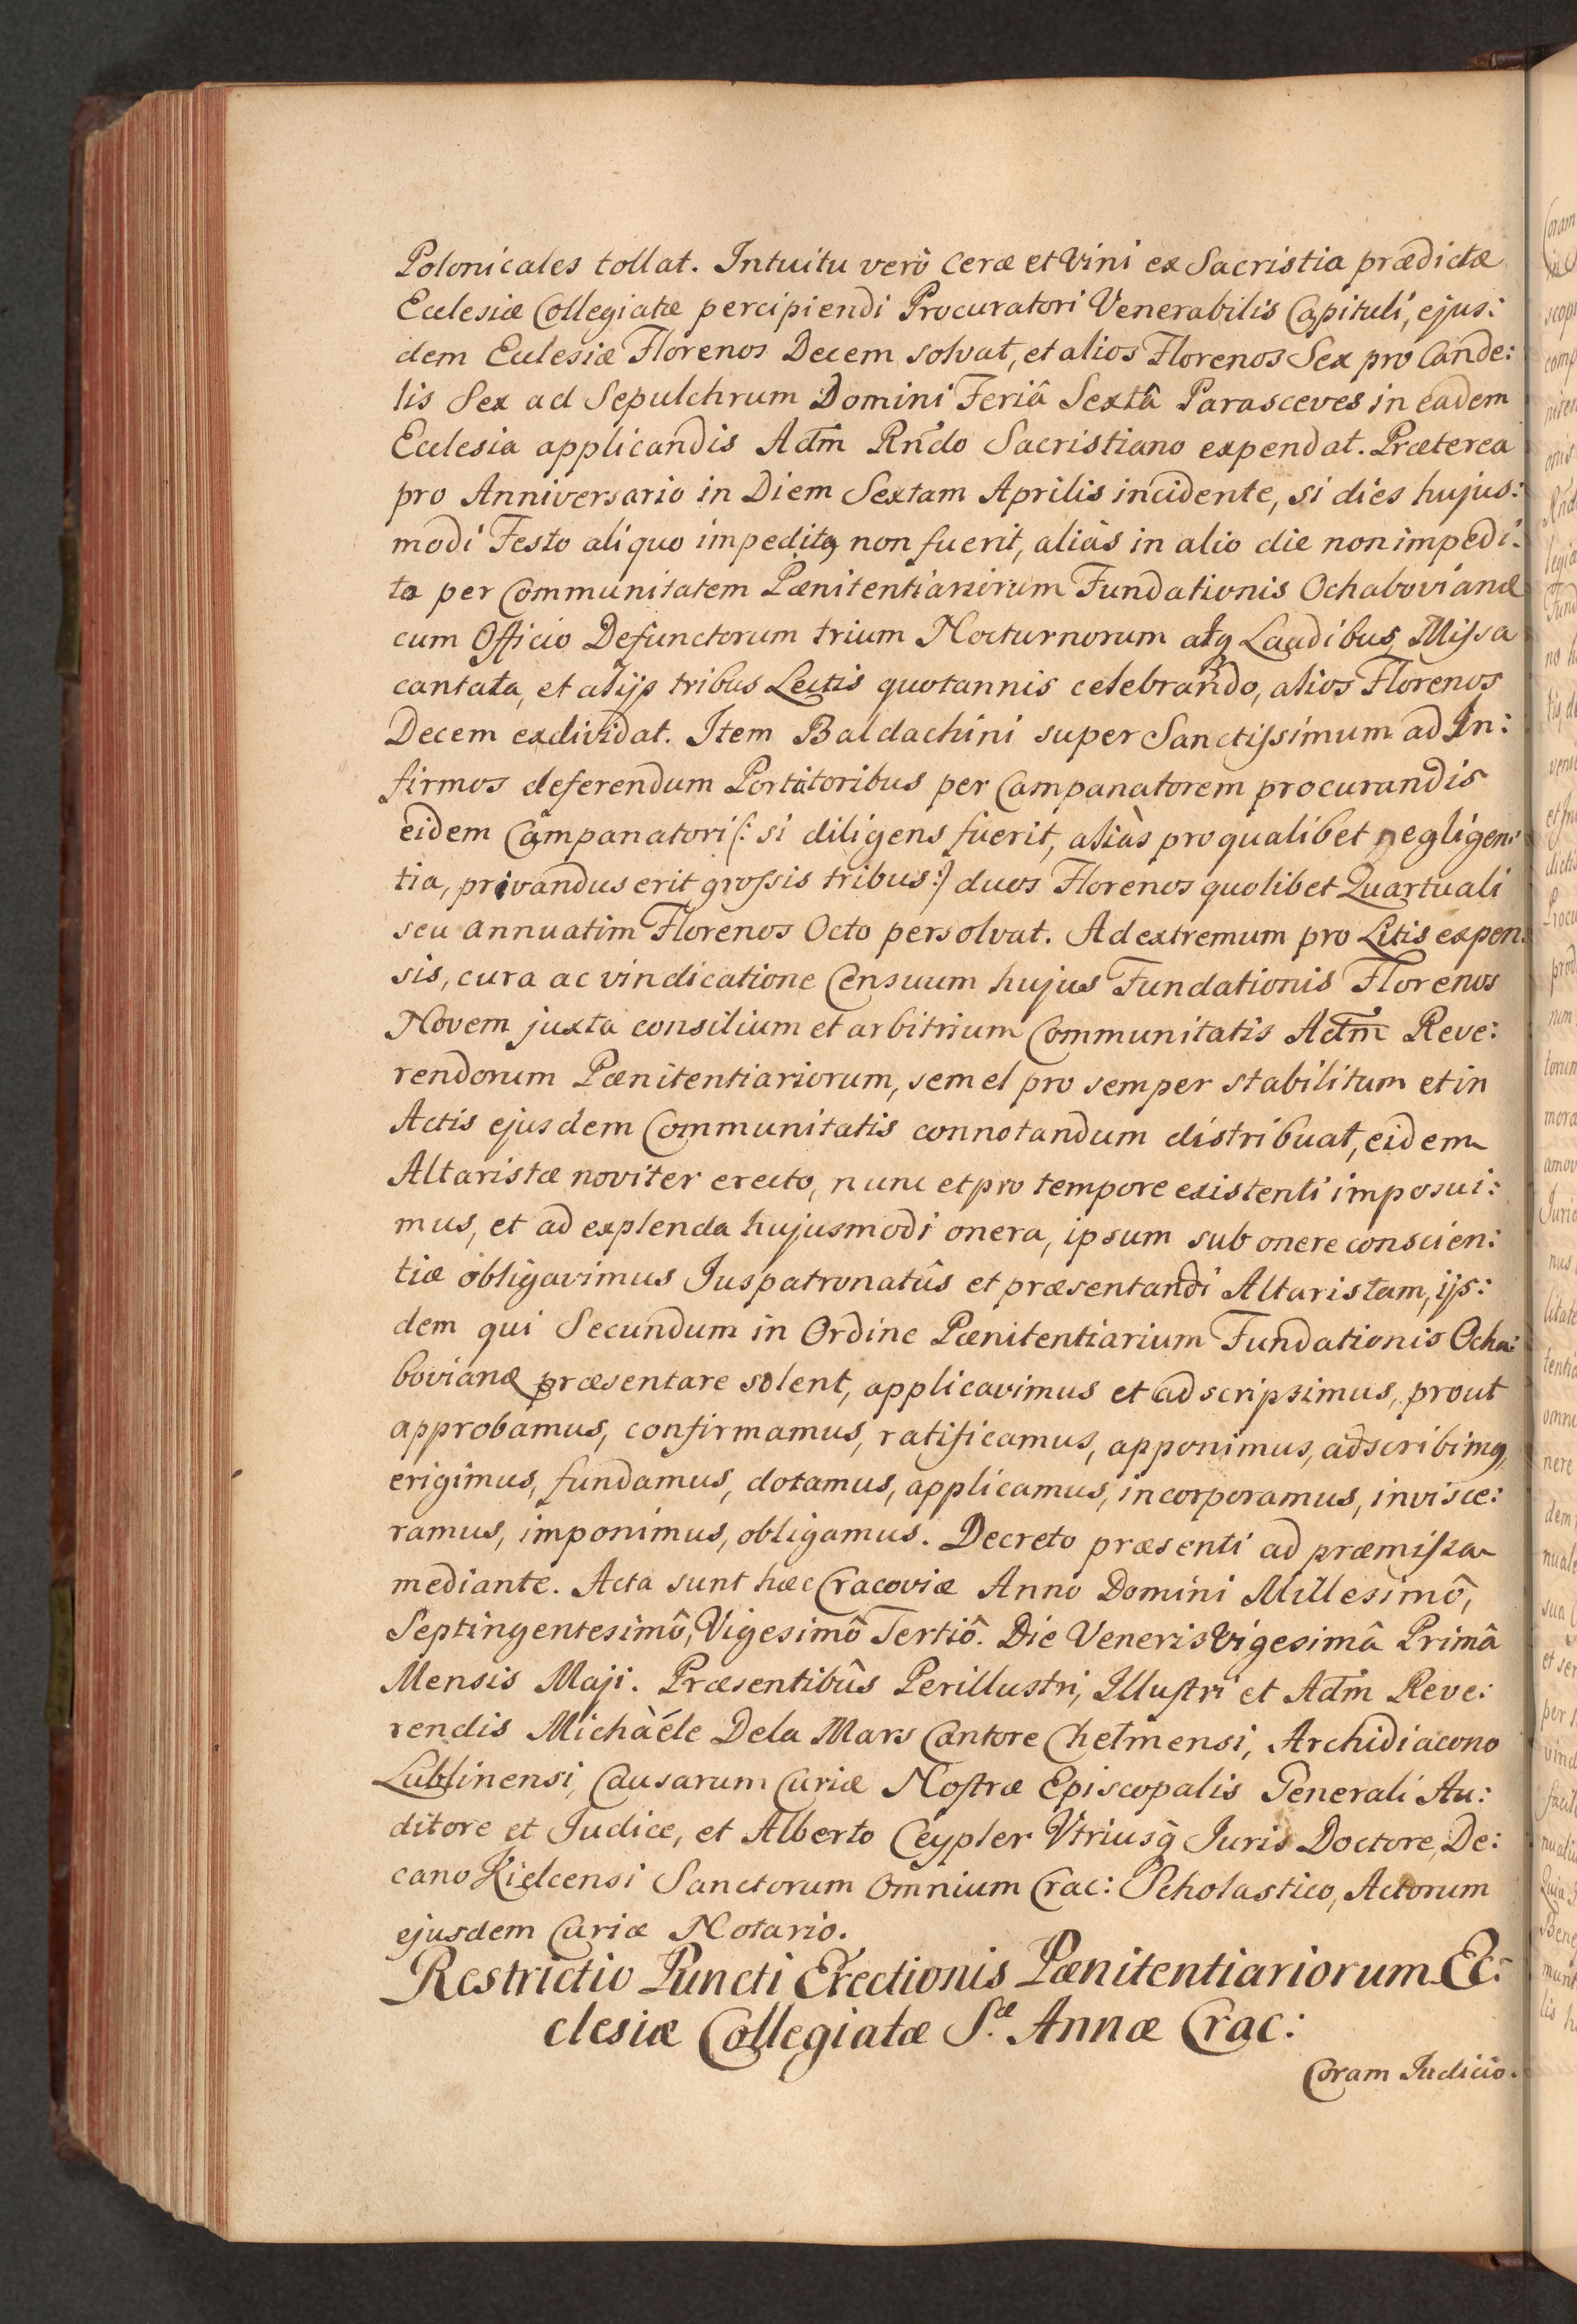 Polonicales tollat. Intuitu verò Ceræ et Vini ex Sacristia prædictæ
Ecclesiæ Collegiatæ percipiendi Procuratori Venerabilis Capituli, ejus:
dem Ecclesiæ Florenos Decem solvat, et alios Florenos Sex pro Cande:
lis Sex ad Sepulchrum Domini Feriâ Sextâ Parasceves in eadem
Ecclesia applicandis Adm̃ Rn̄do Sacristiano expendat. Præterea
pro Anniversario in Diem Sextam Aprilis incidente, si dies hujus:
modi Festo aliquo impeditꝯ non fuerit, aliàs in alio die non impedi:
ta per Communitatem Pœnitentiariorum Fundationis Ochabovianæ
cum Officio Defunctorum trium Nocturnorum atq̢ Laudibus, Missa
cantata, et alijs tribus Lectis quotannis celebrando, alios Florenos
Decem exdividat. Item Baldachini super Sanctissimum ad In:
firmos deferendum Portitoribus per Campanatorem procurandis
eidem Campanatori (: si diligens fuerit, aliàs pro qualibet negligen:
tia, privandus erit grossis tribus :) duos Florenos quolibet Quartuali
seu annuatim Florenos Octo persolvat. Ad extremum pro Litis expen:
sis, cura ac vindicatione Censuum hujus Fundationis Florenos
Novem juxta consilium et arbitrium Communitatis Adm̃ Reve:
rendorum Pœnitentiariorum, semel pro semper stabilitum et in
Actis ejusdem Communitatis connotandum distribuat, eidem
Altaristæ noviter erecto, nunc et pro tempore existenti imposui:
mus, et ad explenda hujusmodi onera, ipsum sub onere conscien:
tiæ obligavimus Juspatronatûs et præsentandi Altaristam, ijs:
dem qui Secundum in Ordine Pœnitentiarium Fundationis Ocha:
bovianæ præsentare solent, applicavimus et adscripsimus, prout
approbamus, confirmamus, ratificamus, apponimus, adscribimꝯ,
erigimus, fundamus, dotamus, applicamus, incorporamus, invisce:
ramus, imponimus, obligamus. Decreto præsenti ad præmissa
mediante. Acta sunt hæc Cracoviæ Anno Domini Millesimô,
Septingentesimô, Vigesimô Tertiô. Die Veneris Vigesimâ Primâ
Mensis Maji. Præsentibûs Perillustri, Illustri et Adm̃ Reve:
rendis Michàéle Dela Mars Cantore Chelmensi, Archidiacono
Lublinensi, Causarum Curiæ Nostræ Episcopalis Generali Au:
ditore et Judice, et Alberto Ceypler Vtriusq̢ Juris Doctore, De:
cano Kielcensi Sanctorum Omnium Crac: Scholastico, Actorum
ejusdem Curiæ Notario.
Restrictio Puncti Erectionis Pœnitentiariorum Ec:
clesiæ Collegiatæ S.æ Annæ Crac:
Coram Judicio.